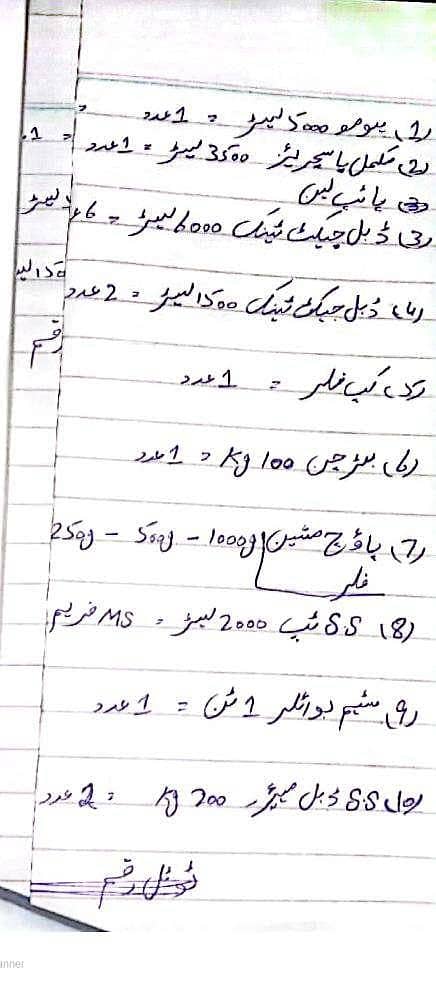 (1) ہومو 5000 لیٹر = 1 عدد
(2) مکمل پاسچرائیز 3500 لیٹر = 1 عدد
پائپ لین
(3) ڈبل جیکٹ ٹینک 6000 لیٹر = 6 عدد
(4) ڈبل جیکٹ ٹینک 1500 لیٹر = 2 عدد
رقم
(5) کپ فلر = 1 عدد
(6) بٹر چرن 100 Kg = 1 عدد
(7) پاؤچ مشین 1000g - 500g - 250g
فلر
(8) S.S ٹب 2000 لیٹر = MS فریم
(9) سٹیم بوائلر 1 ٹن = 1 عدد
(10) S.S ڈبل 200 Kg = 2 عدد
ٹوٹل رقم